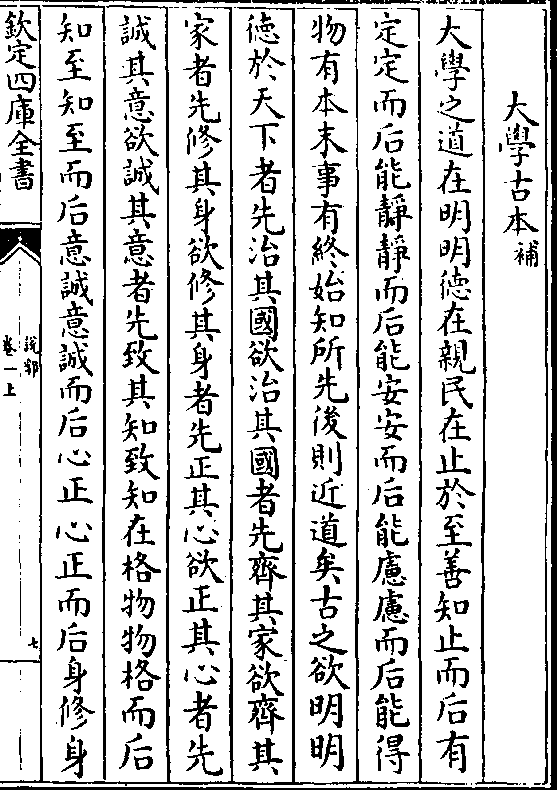 大學古本補
大學之道在明明德在親民在止於至善知止而后有
定定而后能靜靜而后能安安而后能慮慮而后能得
物有本末事有終始知所先後則近道矣古之欲明明
德於天下者先治其國欲治其國者先齊其家欲齊其
家者先修其身欲修其身者先正其心欲正其心者先
誠其意欲誠其意者先致其知致知在格物物格而后
知至知至而后意誠意誠而后心正心正而后身修身
欽定四庫全書
說郛
卷一上
七